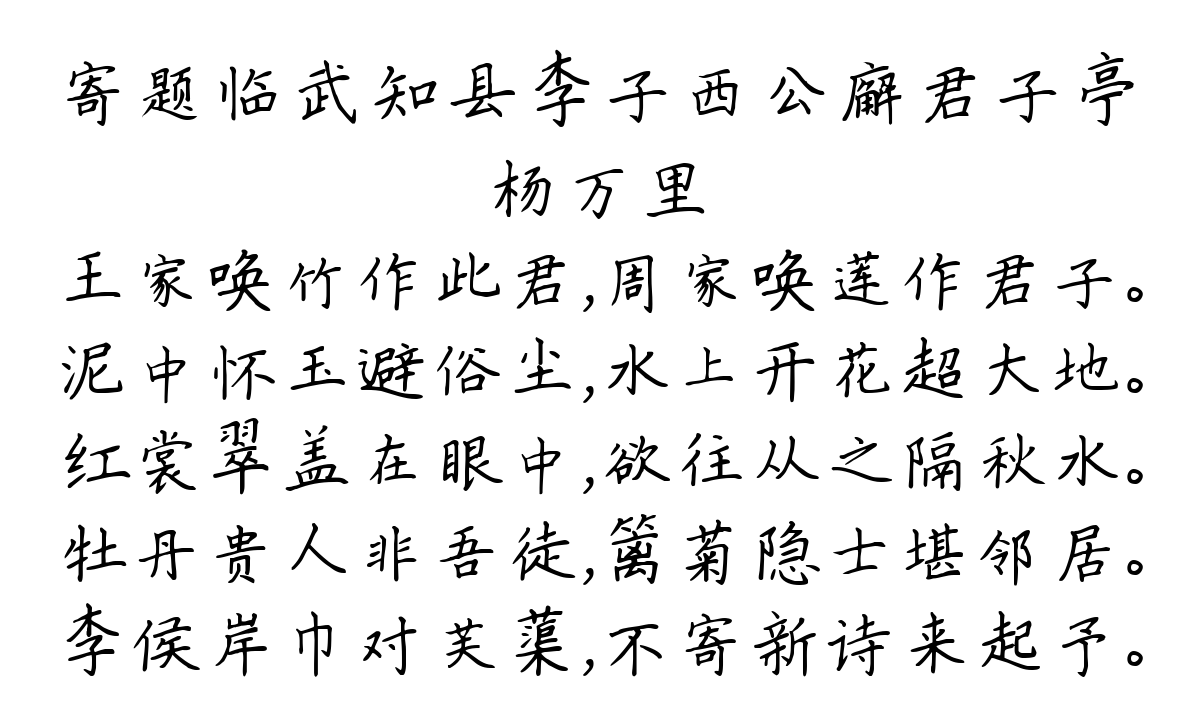 寄题临武知县李子西公廨君子亭
杨万里
王家唤竹作此君,周家唤莲作君子。
泥中怀玉避俗尘,水上开花超大地。
红裳翠盖在眼中,欲往从之隔秋水。
牡丹贵人非吾徒,篱菊隐士堪邻居。
李侯岸巾对芙蕖,不寄新诗来起予。